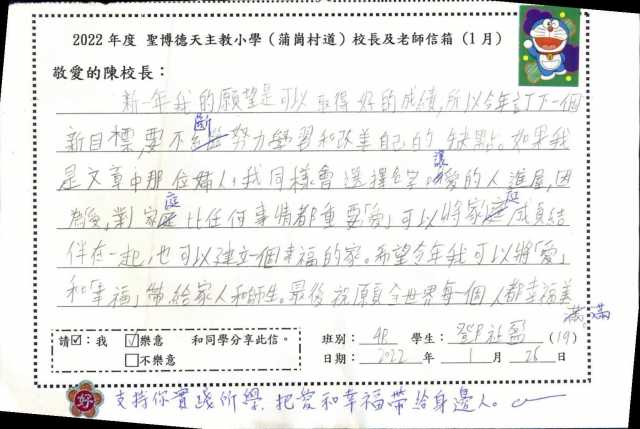 2022 年度 聖博德天主教小學(蒲崗村道)校長及老師信箱(1月)
敬愛的陳校長:
新一年我的願望是可以取得好的成績,所以今年訂下一個
新目標,要不斷努力學習和改善自己的缺點。如果我
是文章中那位婦人,我同樣會選擇讓愛的人進屋,因
為愛,對家庭比任何事情都重要「愛」可以將家庭成員結
伴在一起,也可以建立一個幸福的家。希望今年我可以將「愛」
和「幸福」帶給家人和師生。最後我願全世界每一個人都幸福美
滿
請☑:我 ☑樂意 和同學分享此信。
□不樂意
班別: 4P 學生: 鄧祉盈 (19)
日期: 2022 年 1 月 26 日
好 支持你實踐所學,把愛和幸福帶給身邊人。